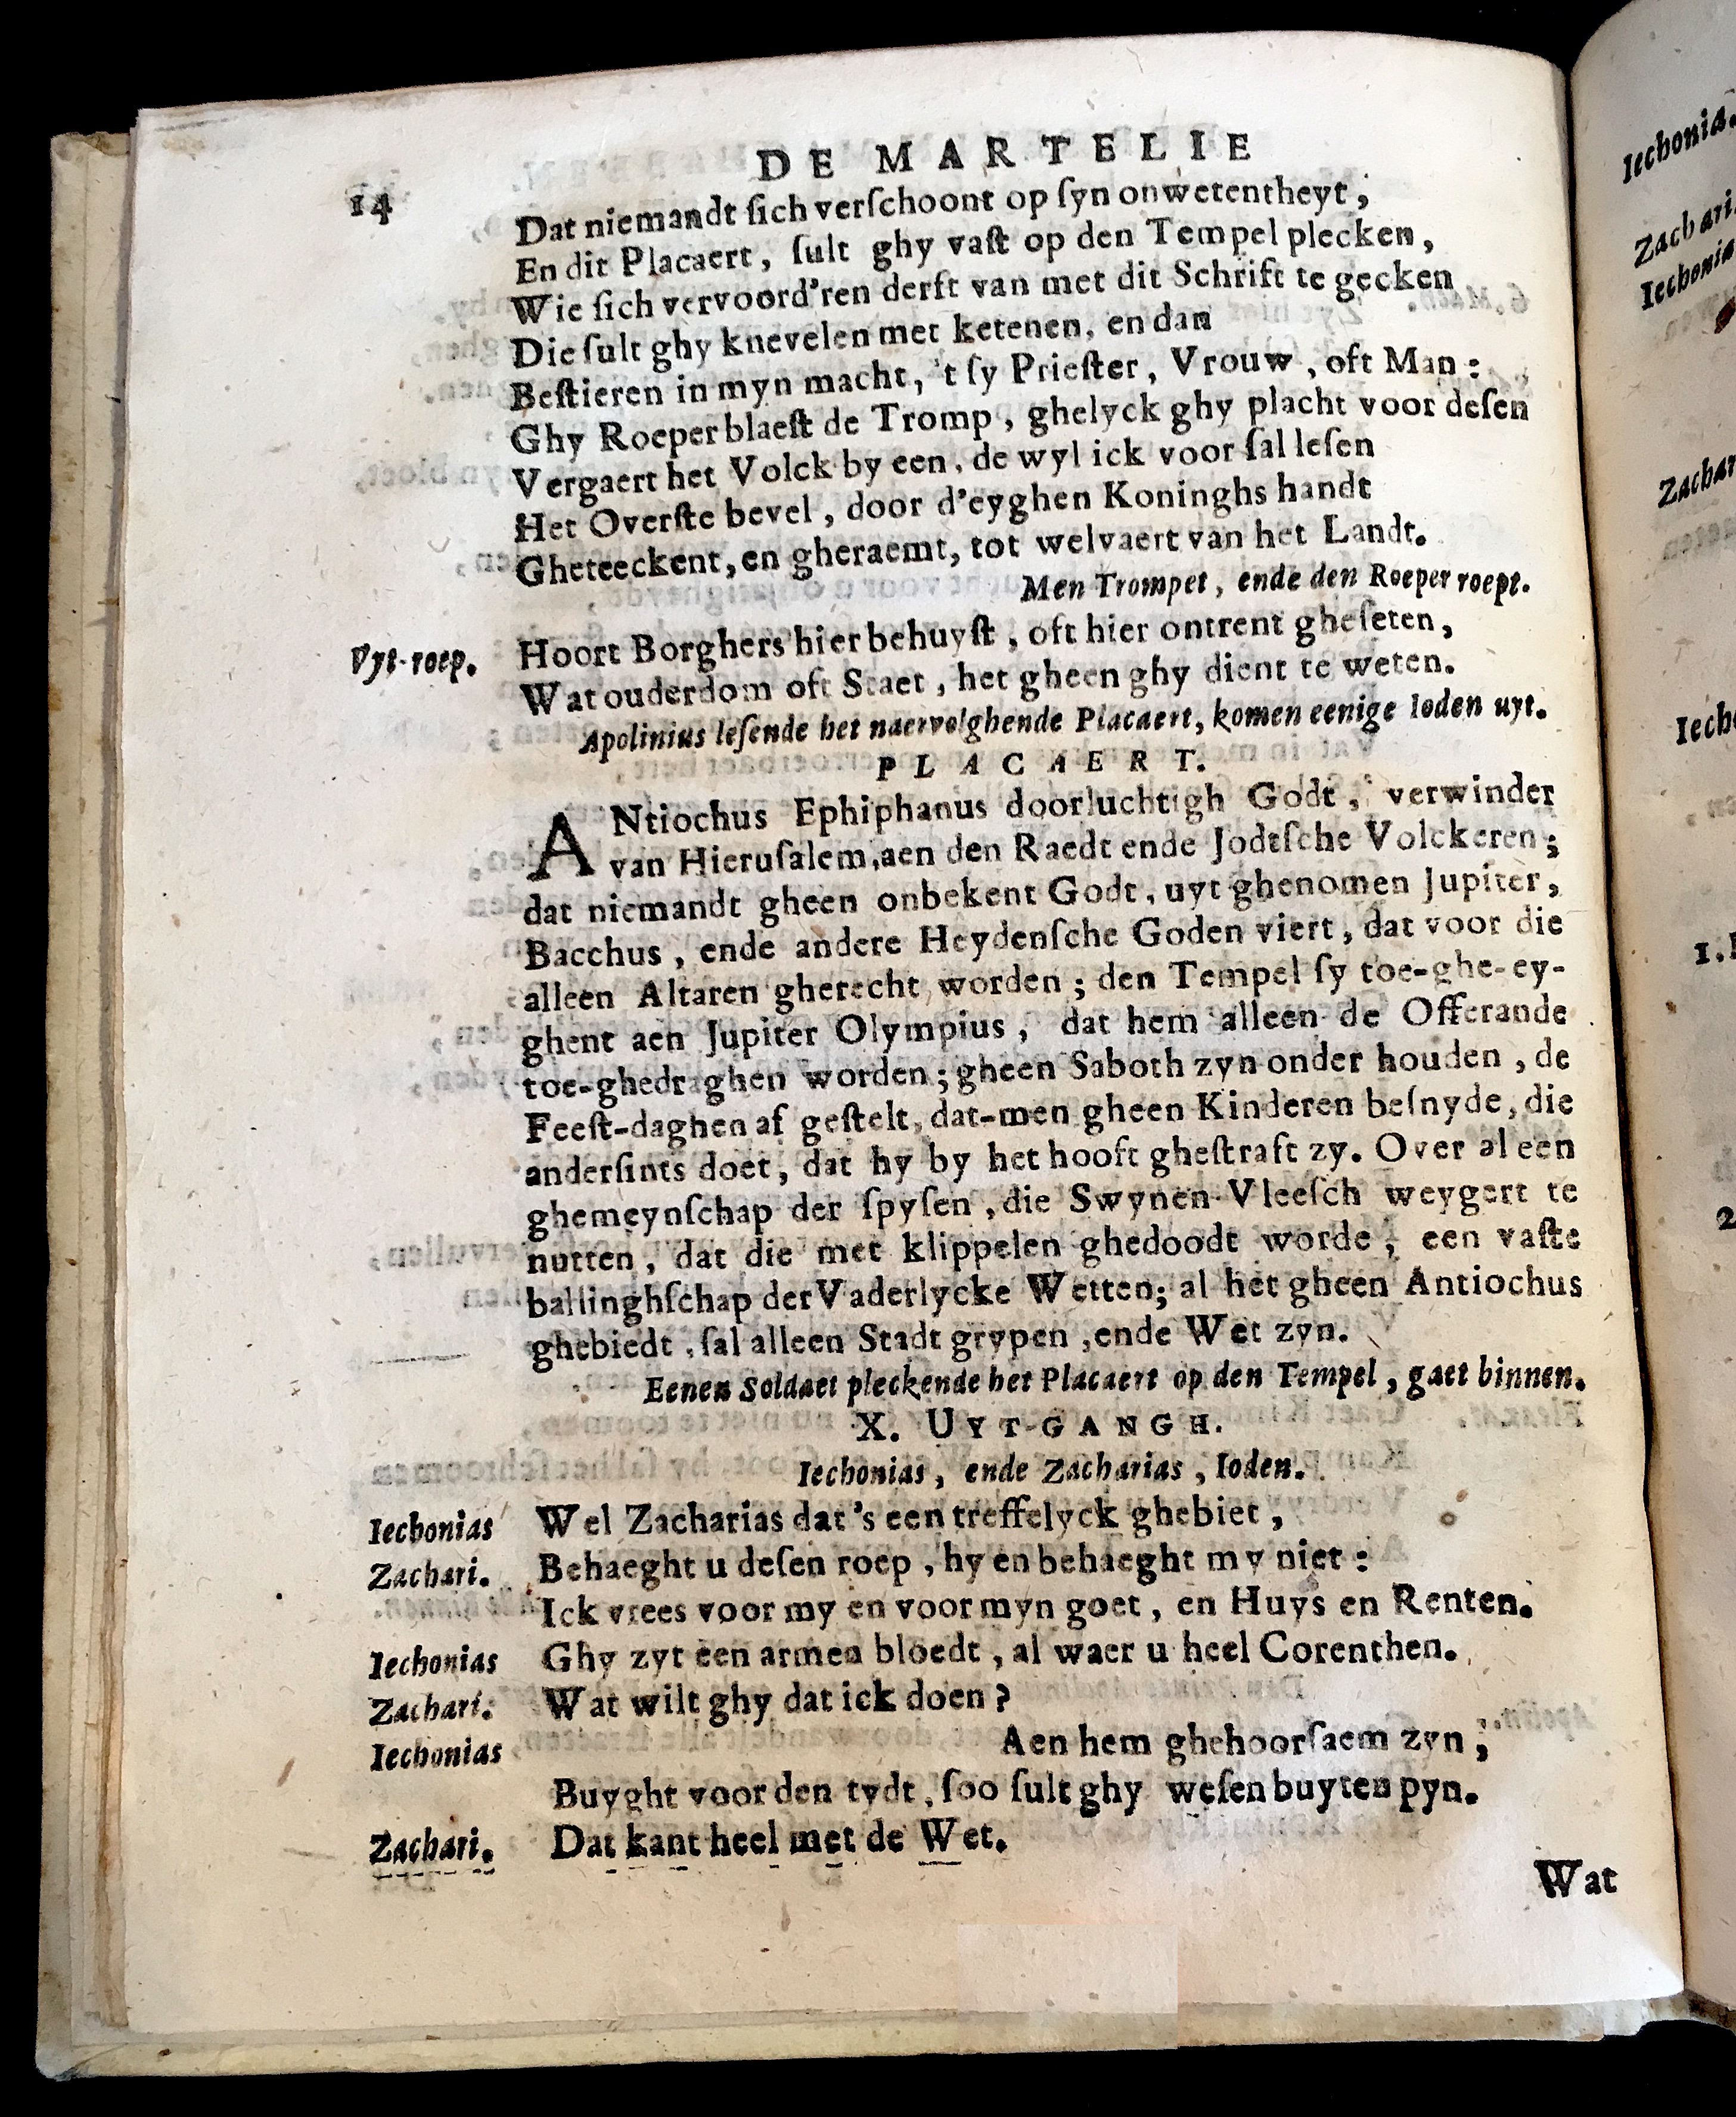 DE MARTELIE
14
Dat niemandt sich verschoont op syn onwetentheyt,
En dit Placaert, sult ghy vast op den Tempel plecken,
Wie sich vervoord'ren derft van met dit Schrift te gecken
Die sult ghy knevelen met ketenen, en dan
Bestieren in myn macht, 't sy Priester, Vrouw, oft Man:
Ghy Roeper blaest de Tromp, ghelyck ghy placht voor desen
Vergaert het Volck by een, de wyl ick voor sal lesen
Het Overste bevel, door d'eyghen Koninghs handt
Gheteeckent, en gheraemt, tot welvaert van het Landt.
Men Trompet, ende den Roeper roept.
Vyt-roep. Hoort Borghers hier behuyst, oft hier ontrent gheseten,
Wat ouderdom oft Staet, het gheen ghy dient te weten.
Apolinius lesende het naervolghende Placaert, komen eenige Ioden uyt.
PLACAERT.
ANtiochus Ephiphanus doorluchtigh Godt, verwinder
van Hierusalem, aen den Raedt ende Jodtsche Volckeren;
dat niemandt gheen onbekent Godt, uyt ghenomen Jupiter,
Bacchus, ende andere Heydensche Goden viert, dat voor die
alleen Altaren gherecht worden; den Tempel sy toe-ghe-ey-
ghent aen Jupiter Olympius, dat hem alleen de Offerande
toe-ghedraghen worden; gheen Saboth zyn onder houden, de
Feest-daghen af gestelt, dat-men gheen Kinderen besnyde, die
andersints doet, dat hy by het hooft ghestraft zy. Over al een
ghemeynschap der spysen, die Swynen-Vleesch weygert te
nutten, dat die met klippelen ghedoodt worde, een vaste
ballinghschap der Vaderlycke Wetten; al het gheen Antiochus
ghebiedt, sal alleen Stadt grypen, ende Wet zyn.
Eenen Soldaet pleckende het Placaert op den Tempel, gaet binnen.
X. UYT-GANGH.
Iechonias, ende Zacharias, Ioden.
Iechonias Wel Zacharias dat's een treffelyck ghebiet,
Zachari. Behaeght u desen roep, hy en behaeght my niet:
Ick vrees voor my en voor myn goet, en Huys en Renten.
Iechonias Ghy zyt een armen bloedt, al waer u heel Corenthen.
Zachari: Wat wilt ghy dat ick doen?
Iechonias Aen hem ghehoorsaem zyn;
Buyght voor den tydt, soo sult ghy wesen buyten pyn.
Zachari. Dat kant heel met de Wet.
Wat
Iechonia.
Zachari.
Iechonia
Zachar
Iecho
1.
2